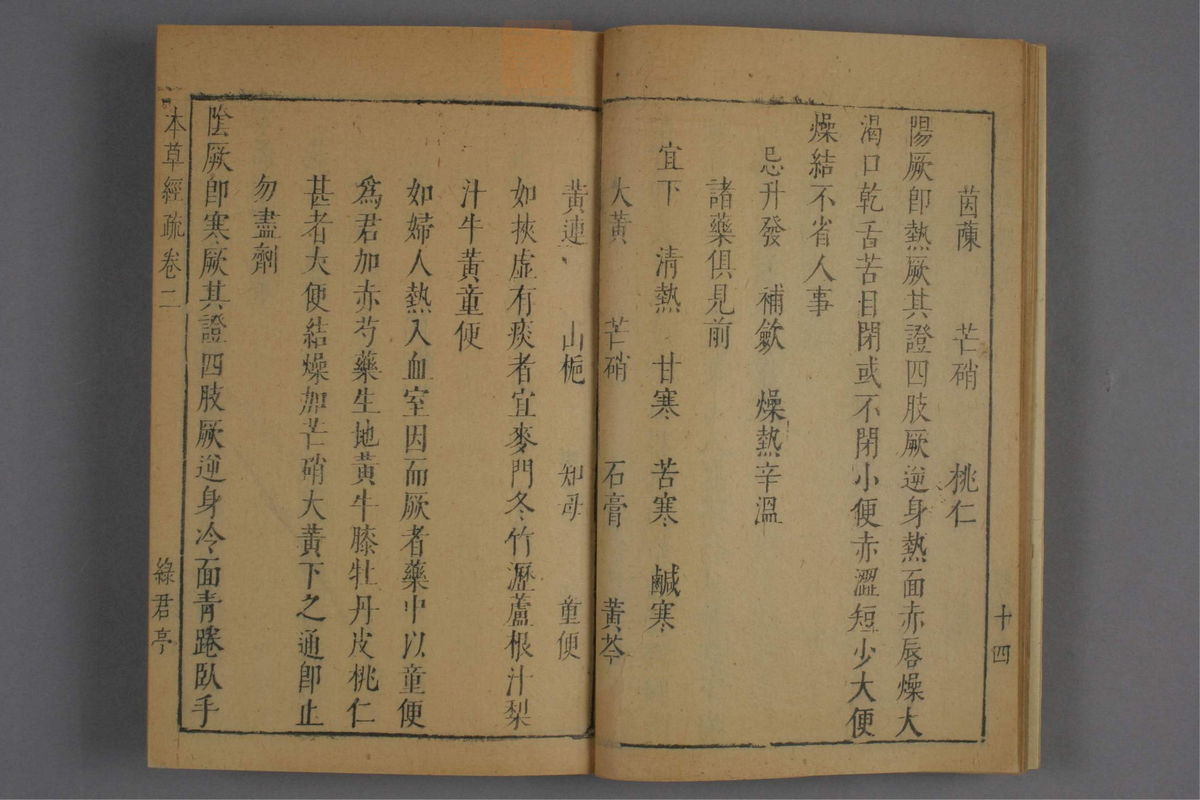 十四
茵蔯 芒硝 桃仁
陽厥卽熱厥其證四肢厥逆身熱面赤唇燥大
渴口乾舌苦目閉或不閉小便赤澀短少大便
燥結不省人事
忌升發 補斂 燥熱辛溫
諸藥俱見前
宜下 清熱 甘寒 苦寒 鹹寒
大黃 芒硝 石膏 黃芩
黃連 山梔 知母 童便
如挾虛有痰者宜麥門冬竹瀝蘆根汁梨
汁牛黃童便
如婦人熱入血室因而厥者藥中以童便
爲君加赤芍藥生地黃牛膝牡丹皮桃仁
甚者大便結燥加芒硝大黃下之通卽止
勿盡劑
陰厥卽寒厥其證四肢厥逆身冷面青踡臥手
本草經疏卷二 綠君亭